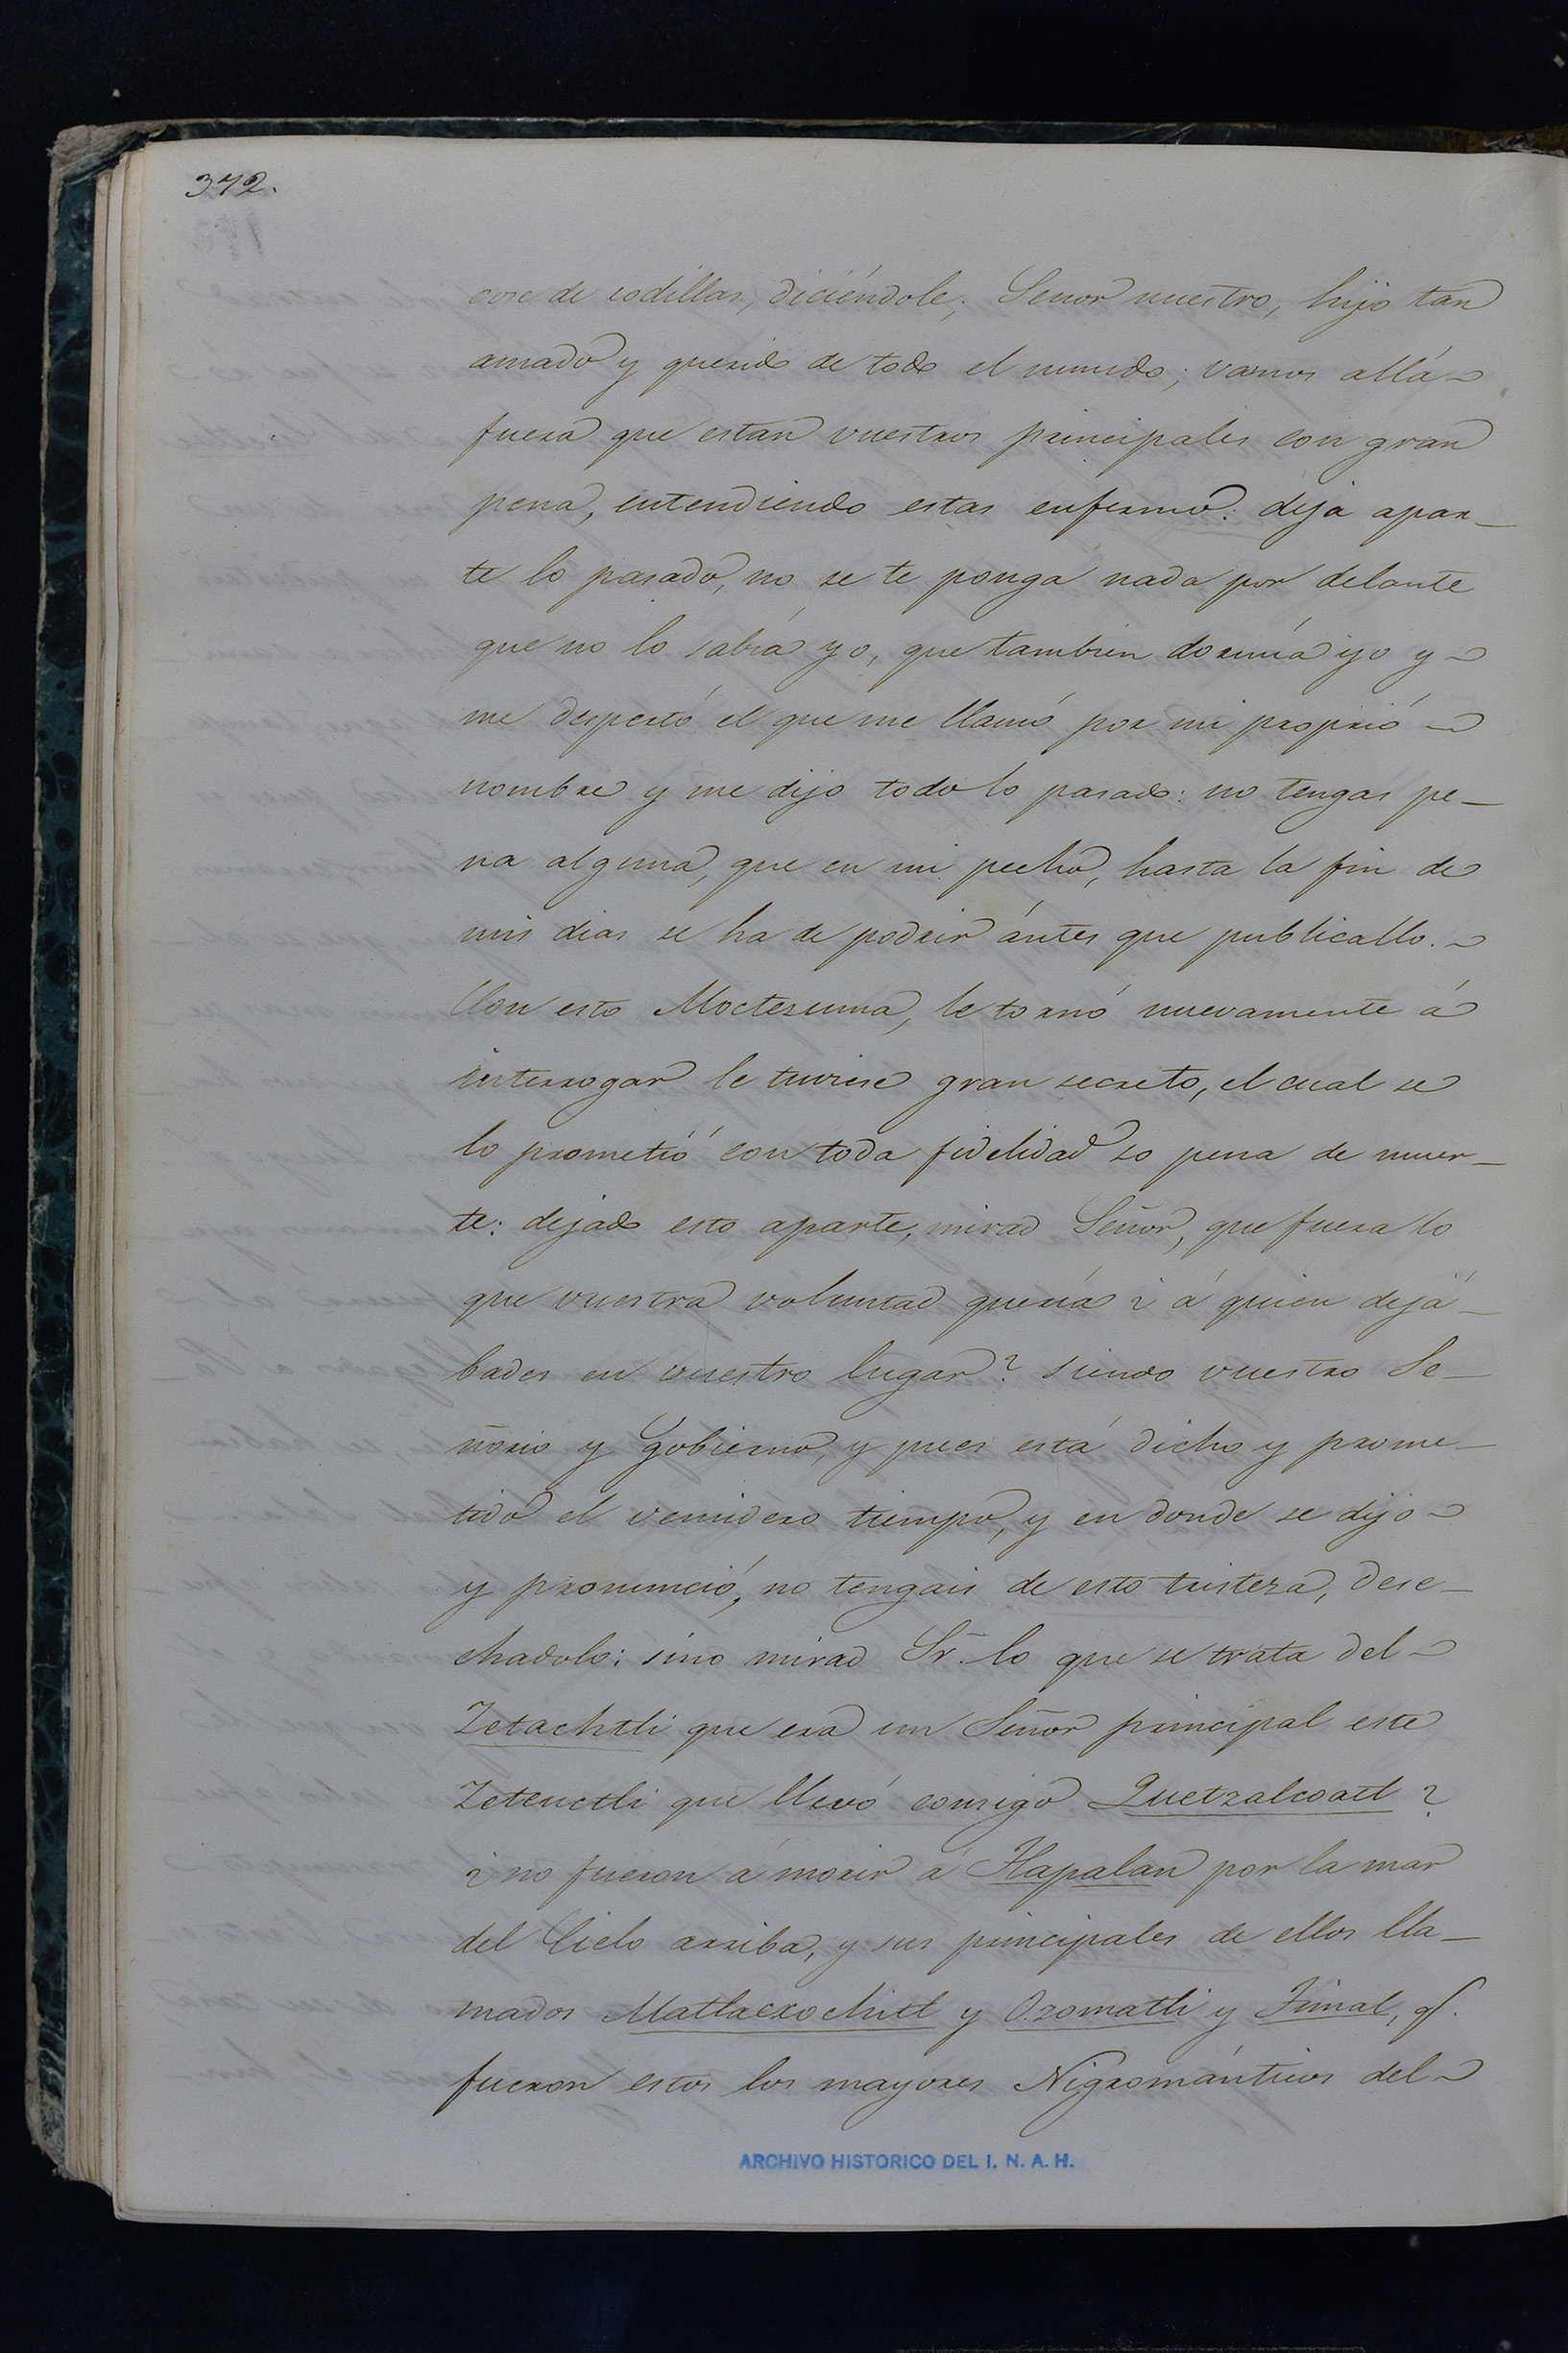 372.
cose de rodillas, diciéndole; Señor nuestro, hijo tan
amado y querido de todo el mundo; vamos allá
fuera que estan vuestros principales con gran
pena, entendiendo estas enfermo: deja apar-
te lo pasado, no se te ponga nada por delante
que no lo sabía yo, que tambien dormía yo y
me despertó el que me llamó por mi proprió
nombre y me dijo todo lo pasado: no tengas pe-
na alguna, que en mi pecho, hasta la fin de
mis dias se ha de podrir ántes que publicallo.
Con esto Moctesuma, le tornó nuevamente á
interrogar le tuviese gran secreto, el cual se
lo prometió con toda fidelidad so pena de muer-
te: dejado esto aparte, mirad Señor, que fuera lo
que vuestra voluntad quería ¿ á quien dejá-
bades en vuestro lugar? siendo vuestro Se-
ñorio y Gobierno, y pues está dicho y prome-
tido el venidero tiempo, y en donde se dijo
y pronunció, no tengais de esto tristeza, dese-
chadolo; sino mirad Sr. lo que se trata del
Zetachtli que era un Señor principal este
Zetenctli que llevó consigo Quetzalcoatl?
¿ no fueron á morir á Tlapalan por la mar
del Cielo arriba, y sus principales de ellos lla-
mados Matlacxochitl y Ozomatli y Timal, q.
fueron estos los mayores Nigrománticos del
ARCHIVO HISTORICO DEL I. N. A. H.